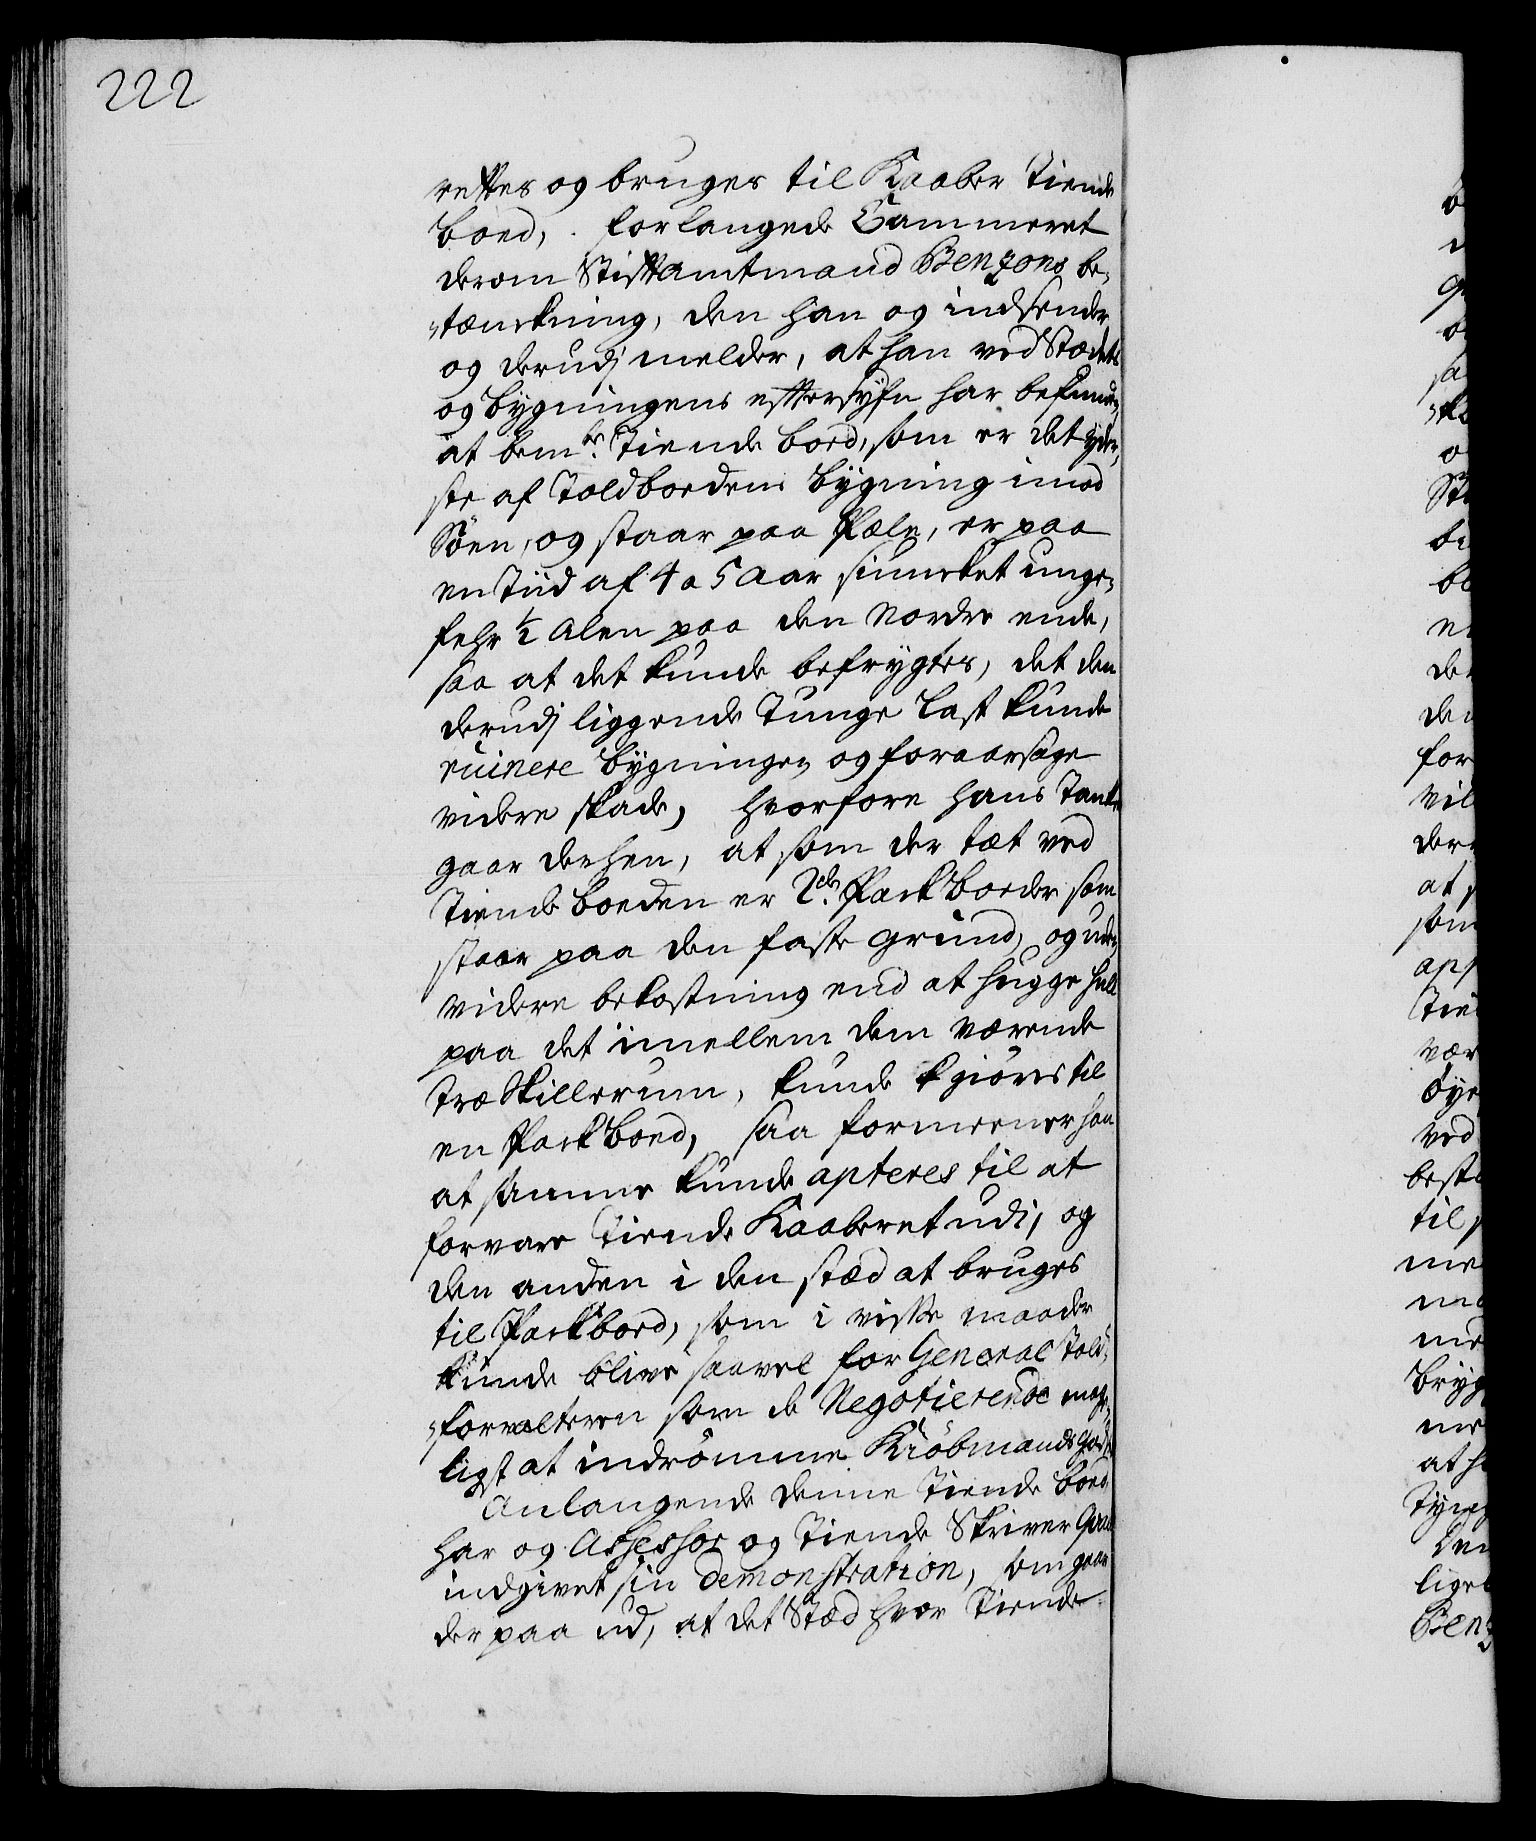 222
rettes og bruges til Kaaber Tiende
boed, forlangede Cammeret
derom Stiftamtmand Benzons be-
tænckning, den han og indsender
og derudj melder, at han ved Stædets
og bygningens effterseyn har befunden
at bemte. Tiende boed, som er det yder-
ste af Toldboedens bygning imod
Søen, og staar paa Pæle, er paa
en Tiid af 4 a 5 Aar siuncket unge-
fehr ½ Alen paa den Nordre ende,
saa at det kunde befrygtes, det den
derudj liggende Tunge Last kunde
ruinere bygningen og foraarsage
videre skade, hvorfore hans Tanke
gaar derhen, at som der tæt ved
Tiende boeden er 2de Pack boeder som
staar paa den faste grund, og uden
videre bekostning end at hugge hull
paa det imellem dem værende
Træ Skillerum, kunde giøres til
en Pack boed, saa formeener han
at samme kunde apteres til at
forvare Tiende Kaaberet udi, og
den anden i den stæd at bruges
til Packboed, som i visse maader
kunde blive saavel for General Told-
forvalteren som de Negotierende mage-
ligst at indrømme Kiøbmands Gods
Anlangende denne Tiende boed
har og Assessor og Tiende Skriver
indgivet sin demonstration, som gaar
der paa ud, at det Stæd hvor Tiende